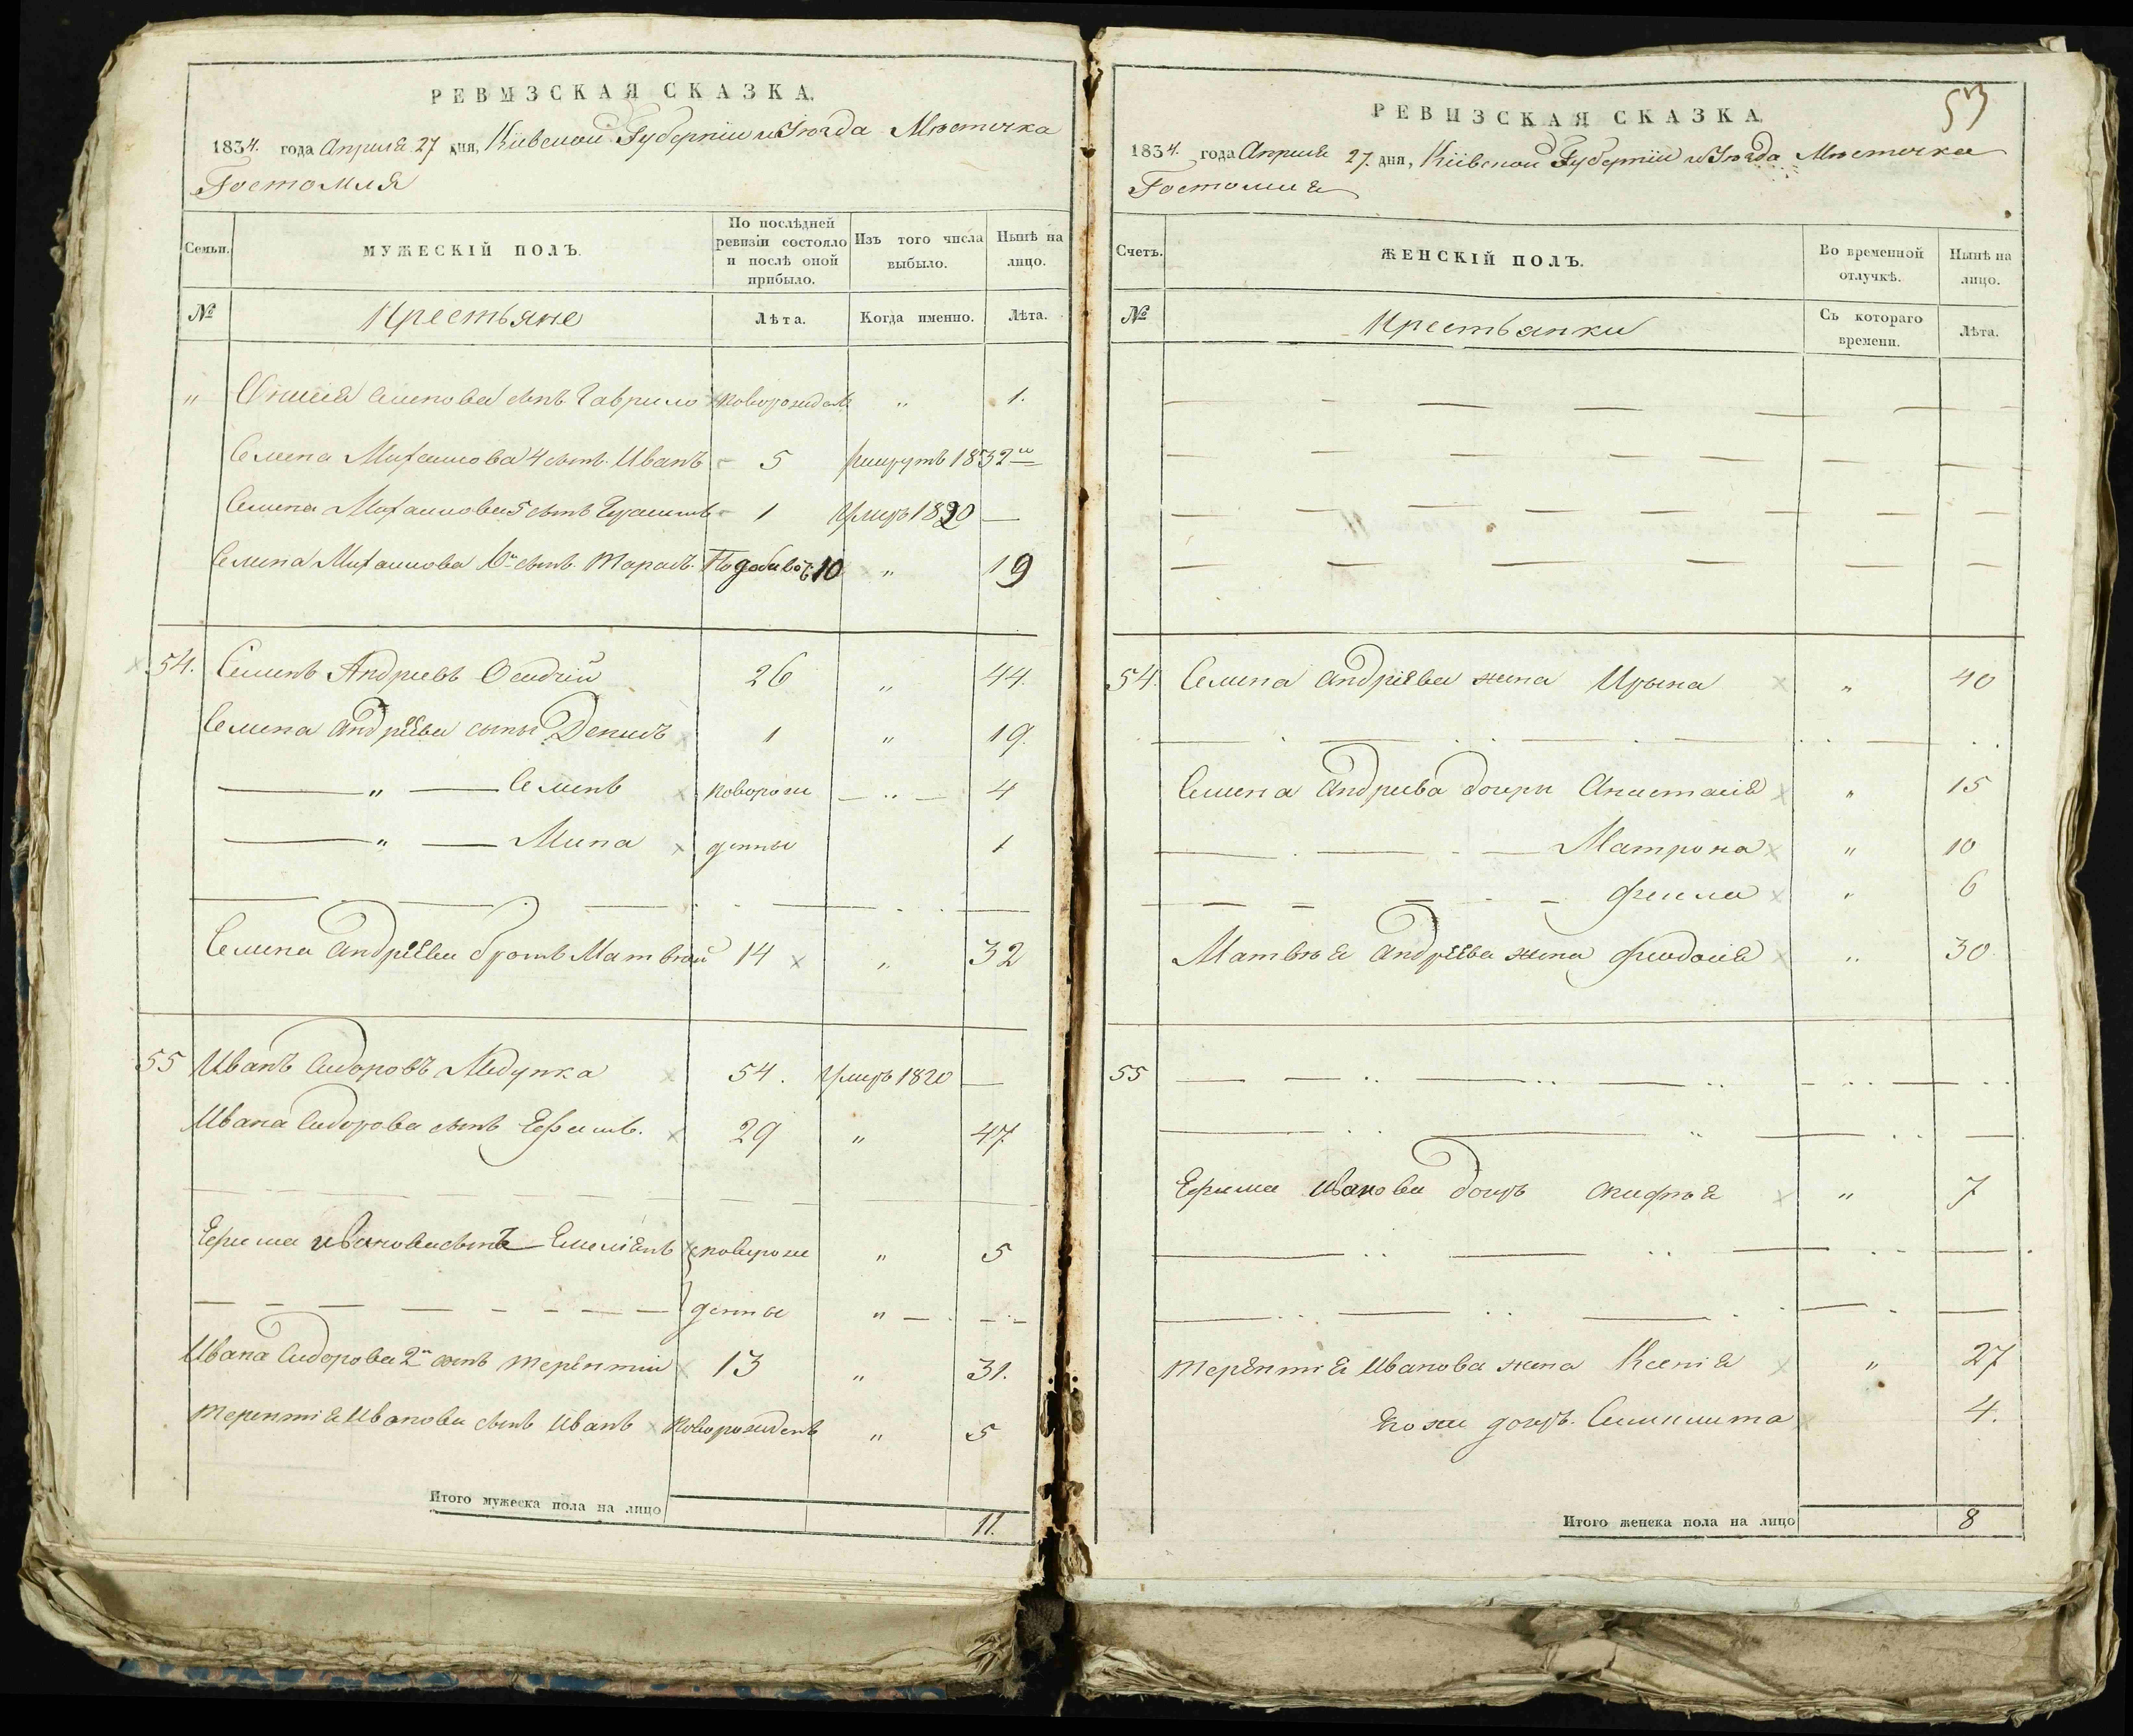 РЕВИЗСКАЯ СКАЗКА.
1834. года Апреля 27 дня, Кіевской Губерніи и Уезда Мѣстечка
Гостомля
Семьи. МУЖЕСКІЙ ПОЛЪ. По послѣдней ревизіи состояло и послѣ оной прибыло. Изъ того числа выбыло. Нынѣ на лицо.
№ Крестьяне Лѣта. Когда именно. Лѣта.
" Семенова сынъ Гаврило новорожденъ " 1.
Семена Михайлова 4 сынъ Иванъ 5 рекрутъ 1832
Семена Михайлова 5 сынъ Герасимъ 1 Умеръ 1820 —
Семена Михайлова 6 сынъ Тарасъ 10 " 19
54. Семенъ Андреевъ 26 " 44
Семена Андрѣева сыны Денисъ 1 " 19.
— " — Семенъ новорож — .. — 4
— " — Мина денные 1
Семена Андрѣева братъ Матвѣй 14 " 32
55 Иванъ Сидоровъ Медунка 54. Умеръ 1820 —
Ивана Сидорова сынъ Ефимъ. 29 " 47
Ефима Иванова сынъ Емеліянъ новорож " 5
денные "
Ивана Сидорова 2й сынъ Терентій 13 " 31.
Терентія Иванова сынъ Иванъ Новорожденъ " 5
Итого мужеска пола на лицо 11.
53
РЕВИЗСКАЯ СКАЗКА
1834. года Апреля 27. дня, Кіевской Губерніи и Уезда Мѣстечка
Гостомля
Счетъ. ЖЕНСКІЙ ПОЛЪ. Во временной отлучкѣ. Нынѣ на лицо.
№ Крестьянки Съ котораго времени. Лѣта.
54. Семена Андріева жена Ирына " 40
Семена Андреева дочери Анастасія " 15
Матрона " 10
Фекла " 6
Матвѣя Андрѣева жена Феодосія " 30
55
Ефима Иванова дочрь " 7
Терентія Иванова жена Ксенія " 27
Его же дочрь. 4.
Итого женска пола на лицо 8